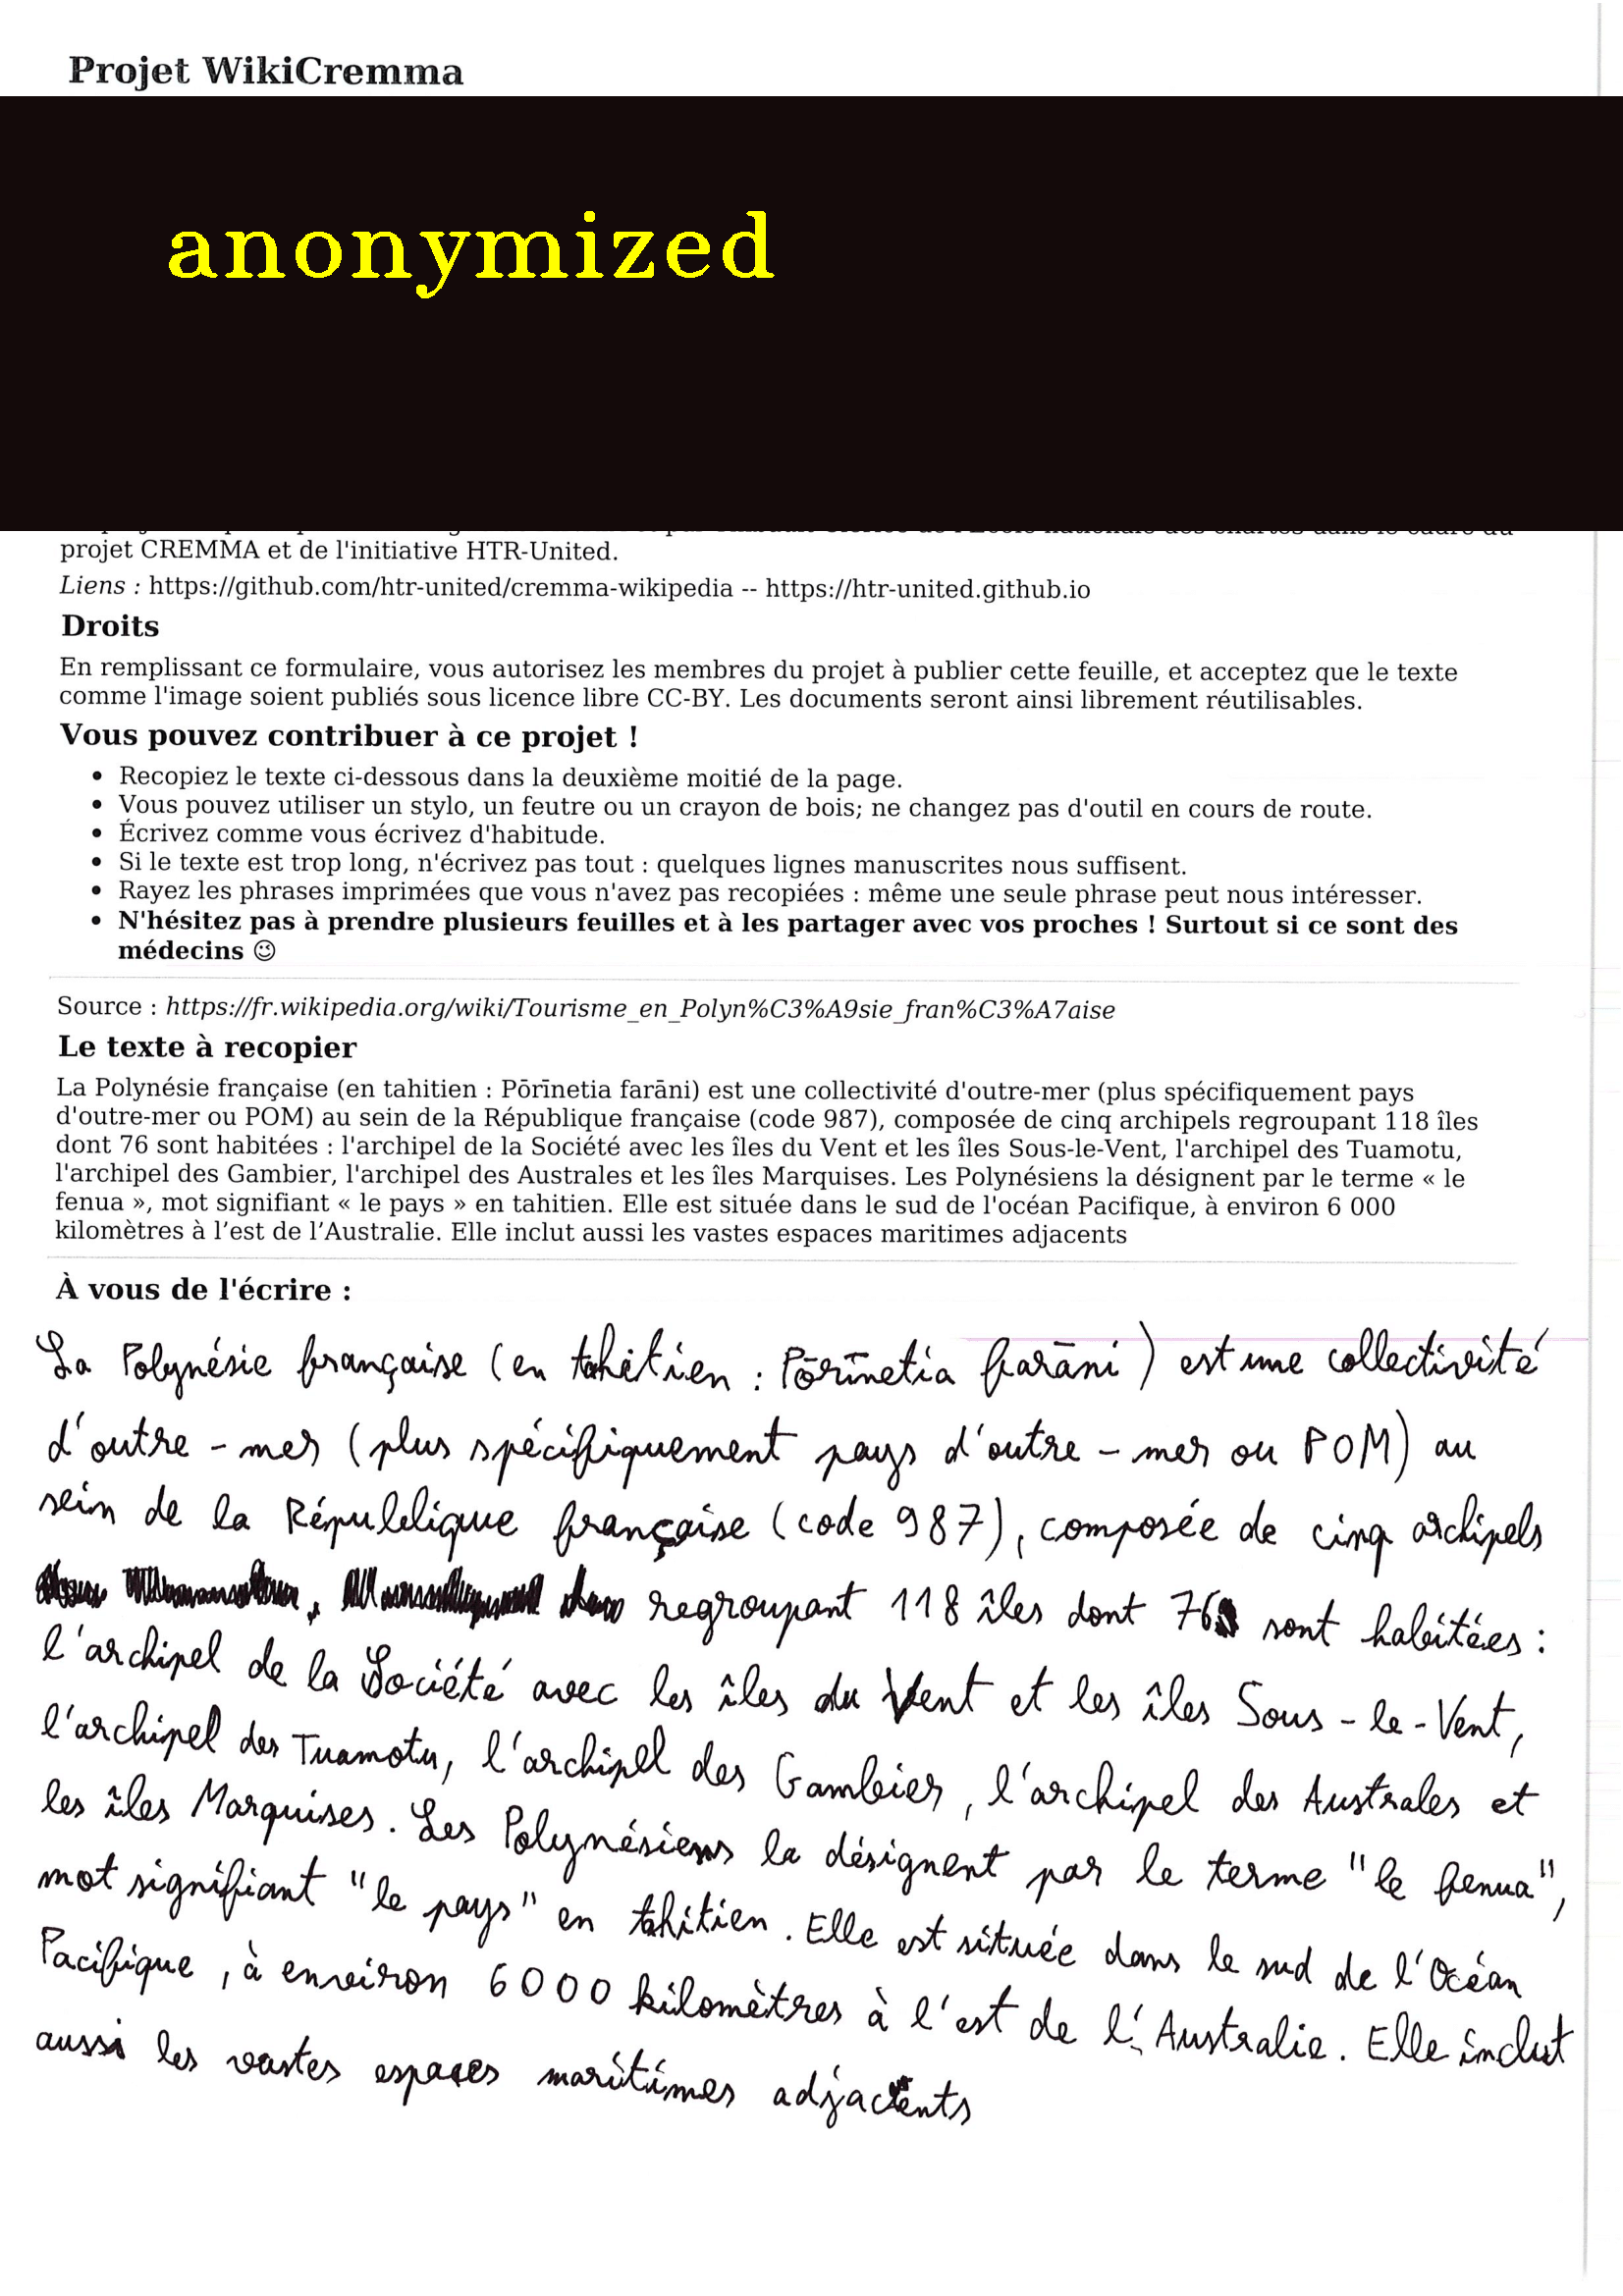 Projet WikiCremma
anonymized
projet CREMMA et de l'initiative HTR-United.
Liens : https://github.com/htr-united/cremma-wikipedia -- https://htr-united.github.io
Droits
En remplissant ce formulaire, vous autorisez les membres du projet à publier cette feuille, et acceptez que le texte
comme l'image soient publiés sous licence libre CC-BY. Les documents seront ainsi librement réutilisables.
Vous pouvez contribuer à ce projet !
• Recopiez le texte ci-dessous dans la deuxième moitié de la page.
• Vous pouvez utiliser un stylo, un feutre ou un crayon de bois; ne changez pas d'outil en cours de route.
• Écrivez comme vous écrivez d'habitude.
• Si le texte est trop long, n'écrivez pas tout : quelques lignes manuscrites nous suffisent.
• Rayez les phrases imprimées que vous n'avez pas recopiées : même une seule phrase peut nous intéresser.
• N'hésitez pas à prendre plusieurs feuilles et à les partager avec vos proches ! Surtout si ce sont des
médecins 😉
Source : https://fr.wikipedia.org/wiki/Tourisme_en_Polyn%C3%A9sie_fran%C3%A7aise
Le texte à recopier
La Polynésie française (en tahitien : Pōrīnetia farāni) est une collectivité d'outre-mer (plus spécifiquement pays
d'outre-mer ou POM) au sein de la République française (code 987), composée de cinq archipels regroupant 118 îles
dont 76 sont habitées : l'archipel de la Société avec les îles du Vent et les îles Sous-le-Vent, l'archipel des Tuamotu,
l'archipel des Gambier, l'archipel des Australes et les îles Marquises. Les Polynésiens la désignent par le terme « le
fenua », mot signifiant « le pays » en tahitien. Elle est située dans le sud de l'océan Pacifique, à environ 6 000
kilomètres à l’est de l’Australie. Elle inclut aussi les vastes espaces maritimes adjacents
À vous de l'écrire :
La Polynésie française (en tahitien : Pōrīnetia farāni) est une collectivité
d'outre-mer (plus spécifiquement pays d'outre-mer ou POM) au
sein de la République française (code 987), composée de cinq archipels
regroupant 118 îles dont 76 sont habitées :
l'archipel de la Société avec les îles du Vent et les îles Sous-le-Vent,
l'archipel des Tuamotu, l'archipel des Gambier, l'archipel des Australes et
les îles Marquises. Les Polynésiens la désignent par le terme "le fenua",
mot signifiant "le pays" en tahitien. Elle est située dans le sud de l'Océan
Pacifique, à environ 6000 kilomètres à l'est de l'Australie. Elle inclut
aussi les vastes espaces maritimes adjacents